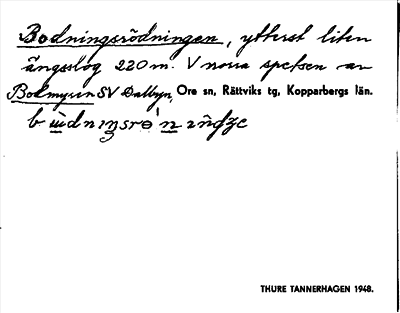 Bodningsrödningen, ytterst liten
ängsslog 220 m. V norra spetsen av
Bolmyren SV Dalbyn, Ore sn, Rättviks tg, Kopparbergs län.
THURE TANNERHAGEN 1948.